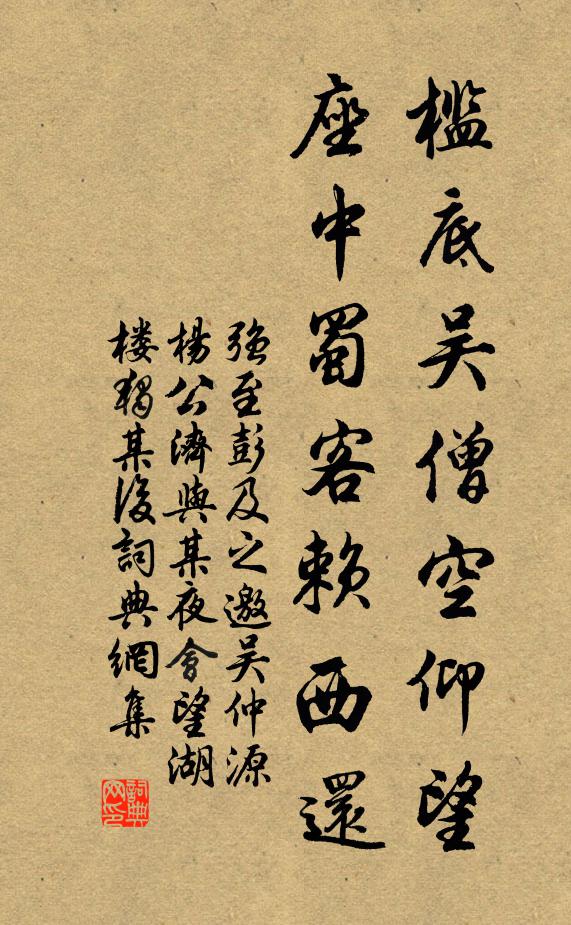 檻底吳僧空仰望
座中蜀客賴西還
强至彭及之邀吴仲源
楊公濟與某夜會望湖
楼獨某後詞典網集
詞典网印